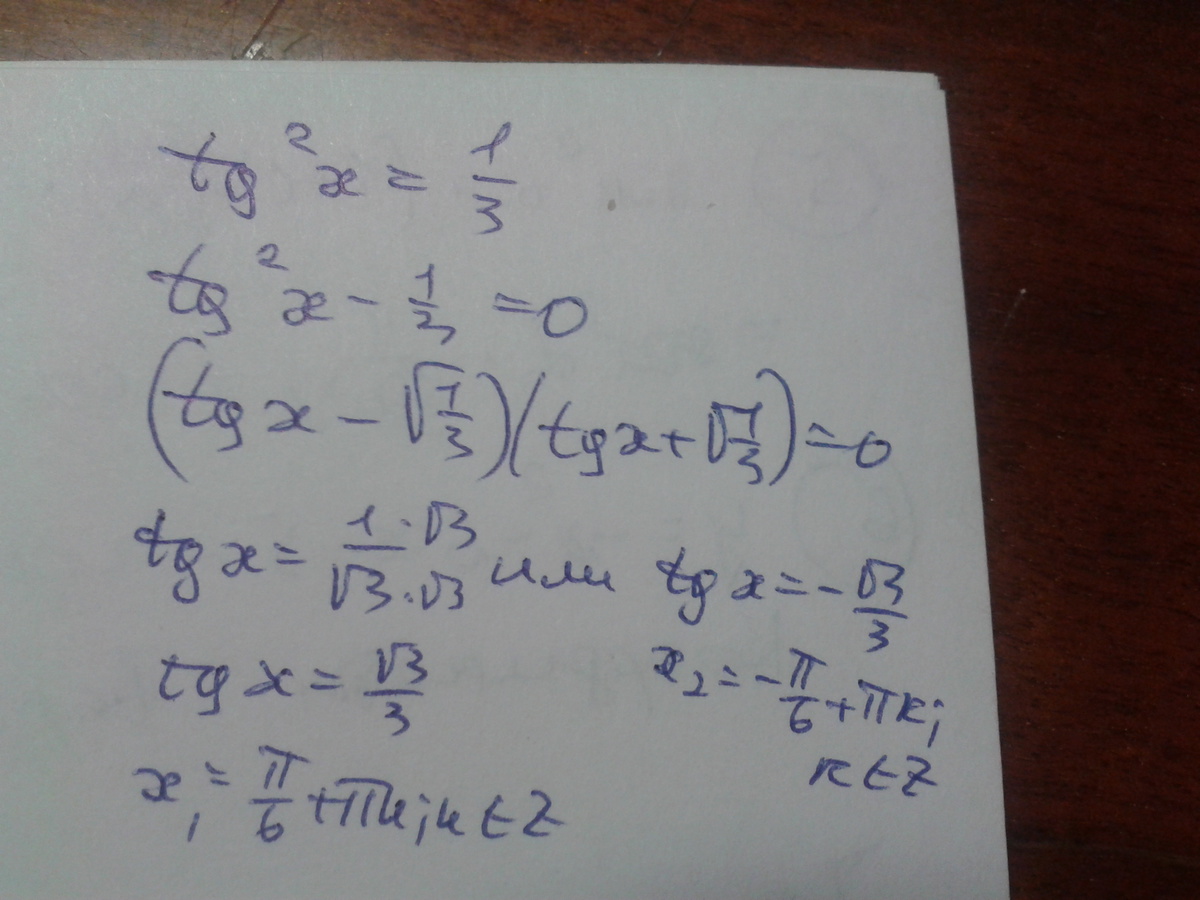 tg²x = 1/3
tg²x - 1/3 = 0
(tg x - √1/3)(tg x + √1/3) = 0
tg x = 1·√3/√3·√3 или tg x = - √3/3
tg x = √3/3
x₂ = - π/6 + πk;
k ∈ Z
x₁ = π/6 + πk; k ∈ Z